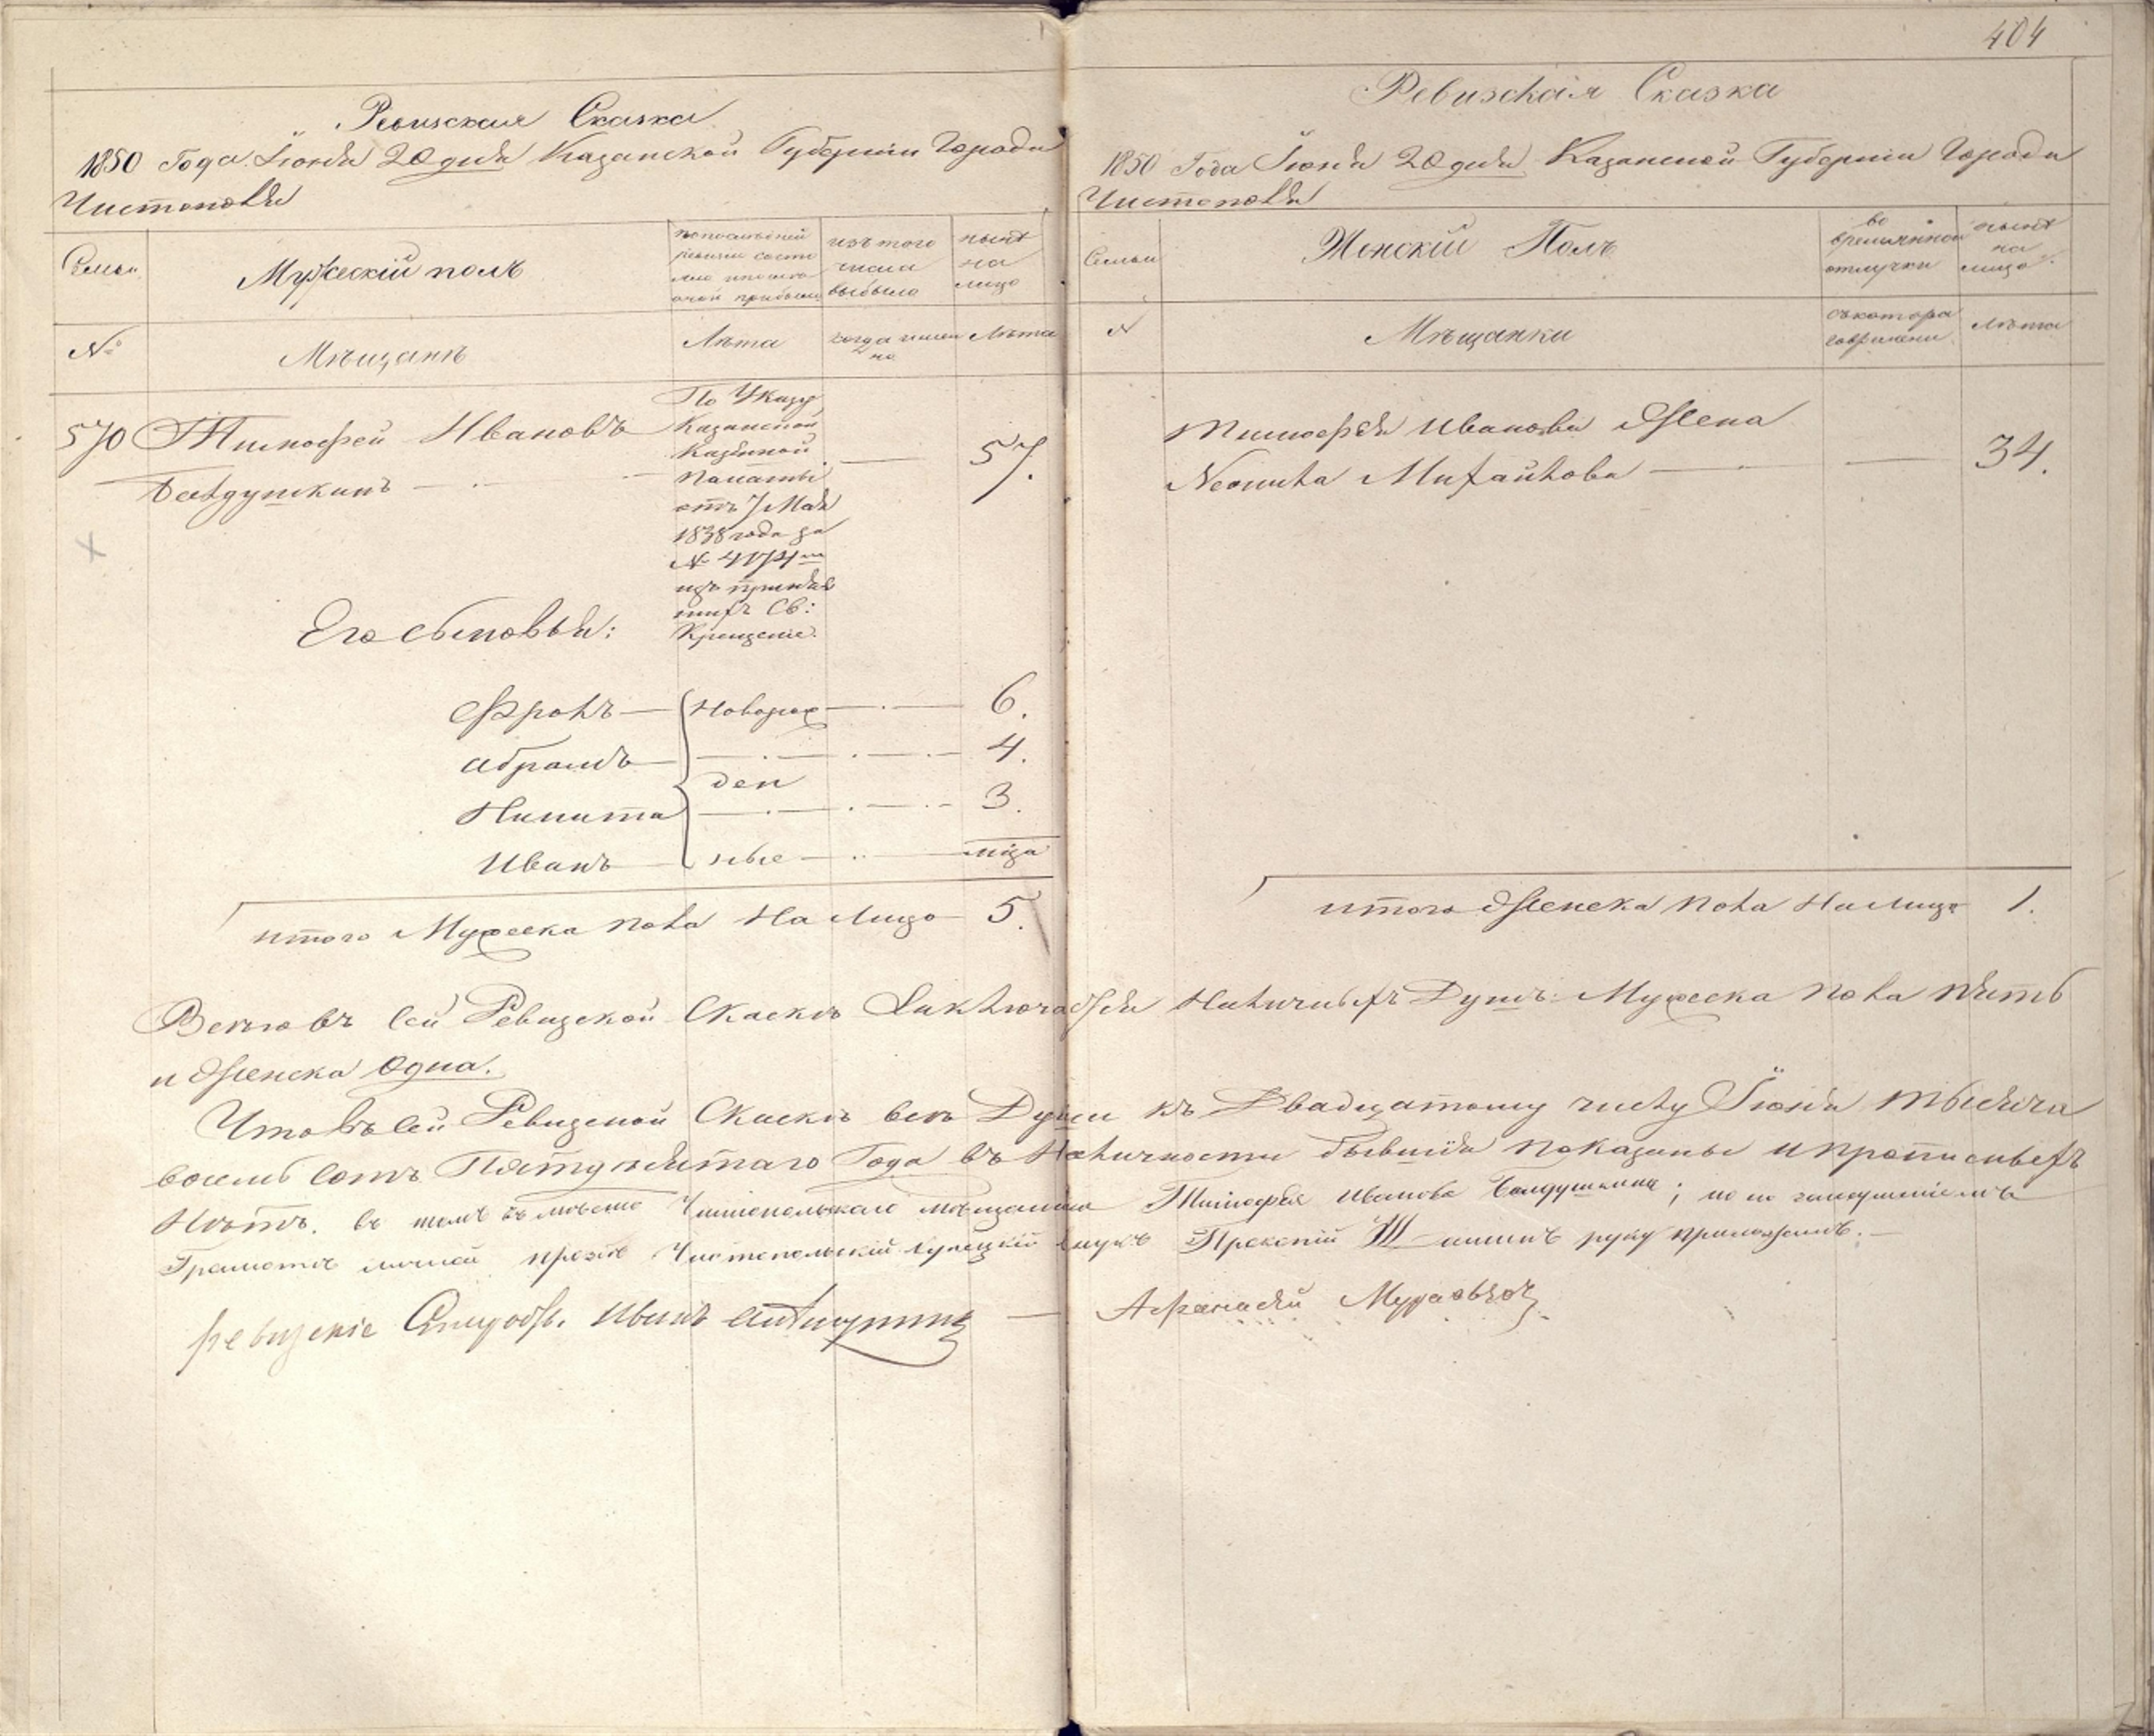 404
Ревизская Сказка
1850 Года Іюня 20 дня Казанской Губерніи Города
Чистополя
Семьи
Мужескій полъ
по последней
ревизіи состо
яло и после
оной прибыло
изъ того
числа
выбыло
ныне
на
лицо
№
Мѣщанъ
Лѣта
когда именно
Лѣта
570 Тимофей Ивановъ
По Указу
Казанской
Казенной
Палаты
отъ 7 Мая
1838 года за
№ 4174 м
изъ приняв
шихъ Св:
Крещеніе.
57.
Его сыновья:
Фролъ
Новорож
6.
Абрамъ
4.
ден
Никита
3.
Иванъ
ные
итого Мужеска пола На Лицо 5.
Ревизская Сказка
1850 Года Іюня 20 дня Казанской Губерніи Города
Чистополя
Семьи
Женскій Полъ
во
временной
отлучки
ныне
на
лицо
№
Мѣщанки
съ котора
го времени
Лѣта
Тимофея Иванова Жена
Михайлова
34.
итого Женска пола На лицо 1.
Всего въ сей Ревизской Скаске Заключается Наличныхъ Душъ: Мужеска пола пять
и Женска Одна.
Что въ сей Ревизской Скаске все Души къ Двадцатому числу Іюня тысяча
восемь сотъ Пятдесятаго Года въ Наличности бывшія показаны и прописныхъ
Нѣтъ. въ томъ въ место Чистопольскаго мѣщанина Тимофея Иванова; по не
Грамоте личной прозбе Чистопольскій Купецкій внукъ руку приложилъ.
Иванъ
Афанасій